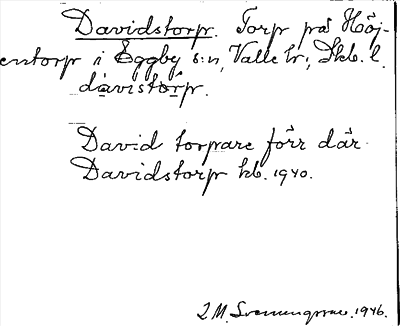 Davidstorp. Torp på Höj-
entorp i Eggby s:n, Valle hr., Skb. l.
dàvistórp.
David torpare förr där.
Davidstorp kb. 1940.
1946.